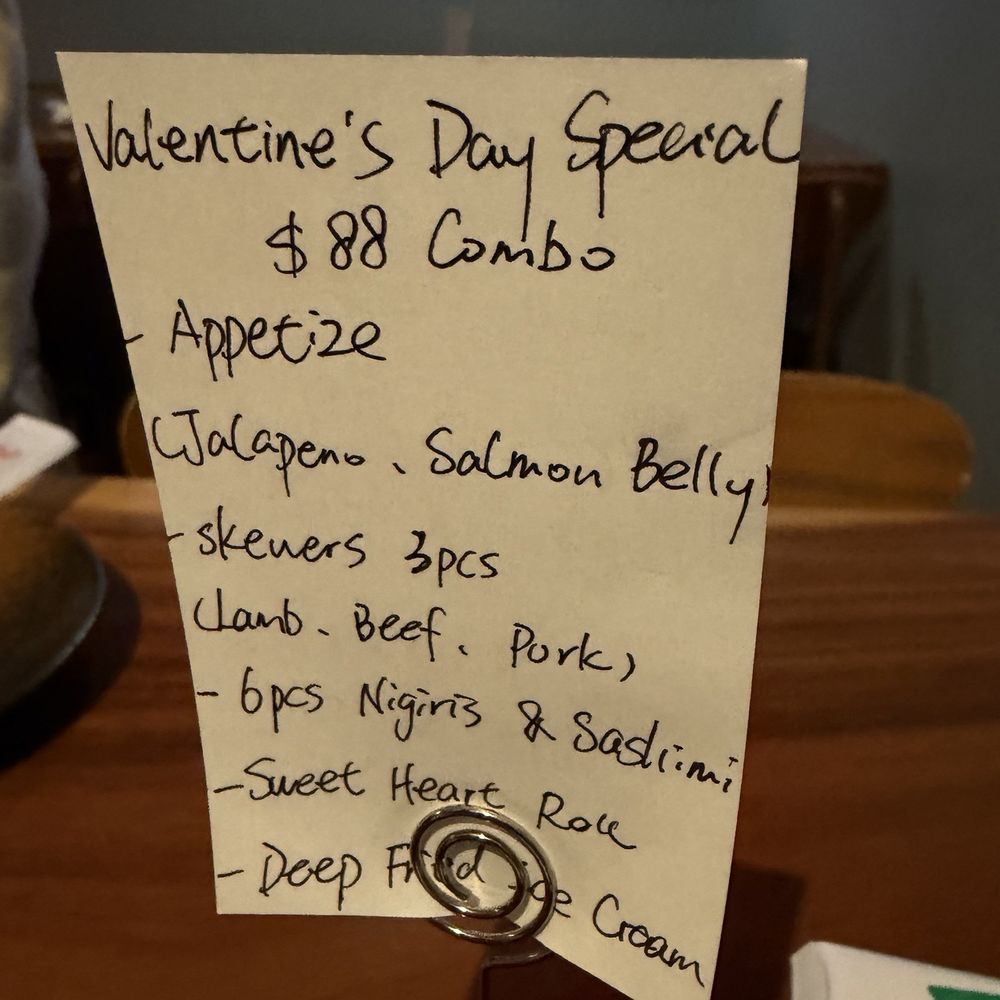 Valentine's Day Special
$88 Combo
- Appetize
(Jalapeno、Salmon Belly)
- skewers 3pcs
(Lamb、Beef、Pork)
- 6pcs Nigiris & Sashimi
- Sweet Heart Roll
- Deep Fried ice Cream